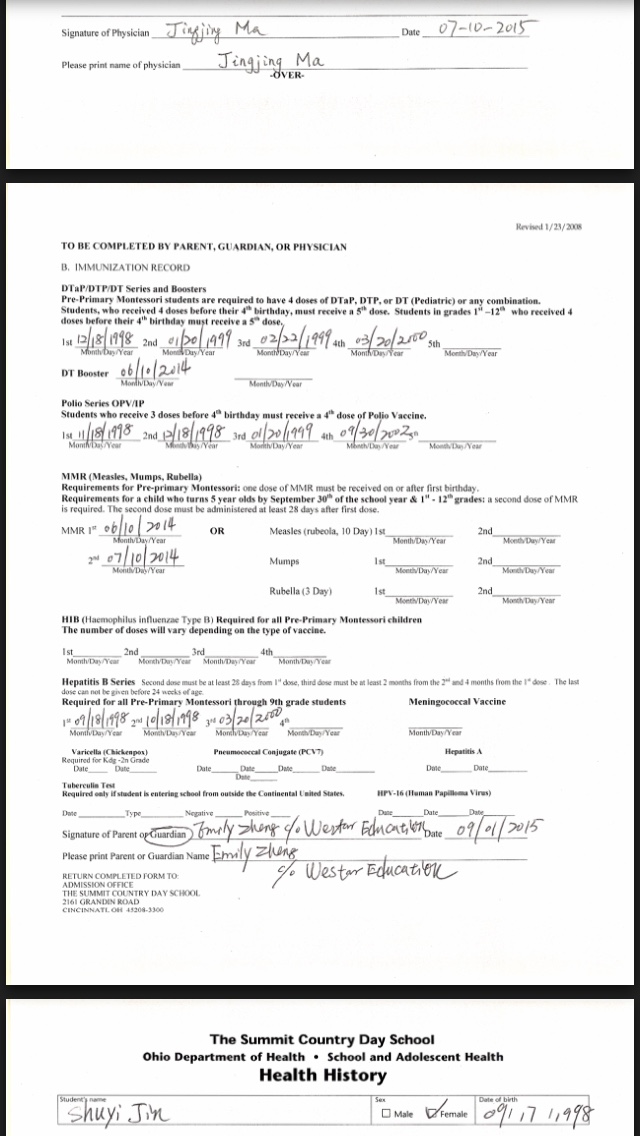 Signature of Physician Jingjing Ma Date 07-10-2015
Please print name of physician Jingjing Ma
-OVER-
Revised 1/23/2008
TO BE COMPLETED BY PARENT, GUARDIAN, OR PHYSICIAN
B. IMMUNIZATION RECORD
DTaP/DTP/DT Series and Boosters
Pre-Primary Montessori students are required to have 4 doses of DTaP, DTP, or DT (Pediatric) or any combination.
Students, who received 4 doses before their 4th birthday, must receive a 5th dose. Students in grades 1st -12th who received 4
doses before their 4th birthday must receive a 5th dose.
1st 12/18/1998 2nd 01/20/1999 3rd 02/22/1999 4th 03/20/2000 5th
Month/Day/Year Month/Day/Year Month/Day/Year Month/Day/Year Month/Day/Year
DT Booster 06/10/2014
Month/Day/Year Month/Day/Year
Polio Series OPV/IP
Students who receive 3 doses before 4th birthday must receive a 4th dose of Polio Vaccine.
1st 11/18/1998 2nd 12/18/1998 3rd 01/20/1999 4th 09/30/2002 5th
Month/Day/Year Month/Day/Year Month/Day/Year Month/Day/Year Month/Day/Year
MMR (Measles, Mumps, Rubella)
Requirements for Pre-primary Montessori: one dose of MMR must be received on or after first birthday.
Requirements for a child who turns 5 year olds by September 30th of the school year & 1st - 12th grades: a second dose of MMR
is required. The second dose must be administered at least 28 days after first dose.
MMR 1st 06/10/2014 OR Measles (rubeola, 10 Day) 1st 2nd
Month/Day/Year Month/Day/Year Month/Day/Year
2nd 07/10/2014 Mumps 1st 2nd
Month/Day/Year Month/Day/Year Month/Day/Year
Rubella (3 Day) 1st 2nd
Month/Day/Year Month/Day/Year
HIB (Haemophilus influenzae Type B) Required for all Pre-Primary Montessori children
The number of doses will vary depending on the type of vaccine.
1st 2nd 3rd 4th
Month/Day/Year Month/Day/Year Month/Day/Year Month/Day/Year
Hepatitis B Series Second dose must be at least 28 days from 1st dose, third dose must be at least 2 months from the 2nd and 4 months from the 1st dose. The last
dose can not be given before 24 weeks of age.
Required for all Pre-Primary Montessori through 9th grade students Meningococcal Vaccine
1st 09/18/1998 2nd 10/18/1998 3rd 03/20/2000 4th
Month/Day/Year Month/Day/Year Month/Day/Year Month/Day/Year Month/Day/Year
Varicella (Chickenpox) Pneumococcal Conjugate (PCV7) Hepatitis A
Required for Kdg -2n Grade
Date Date Date Date Date Date Date Date
Date
Tuberculin Test
Required only if student is entering school from outside the Continental United States. HPV-16 (Human Papilloma Virus)
Date Type Negative Positive Date Date Date
Signature of Parent or Guardian Emily Zheng c/o Westar Education Date 09/01/2015
Please print Parent or Guardian Name Emily Zheng
c/o Westar Education
RETURN COMPLETED FORM TO:
ADMISSION OFFICE
THE SUMMIT COUNTRY DAY SCHOOL
2161 GRANDIN ROAD
CINCINNATI, OH 45208-3300
The Summit Country Day School
Ohio Department of Health • School and Adolescent Health
Health History
Student's name Sex Date of birth
Shuyi Jin Male Female 09/17/1998